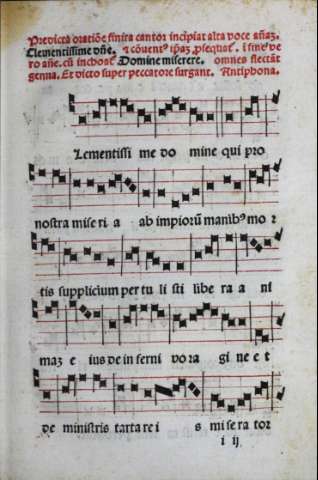 Predicta oratiõe finita cantor incipiat alta voce añaʒ.
Clementissime dñe. ⁊ cõuent⁹ ip̃aʒ ꝓsequat̃. I fine ve
ro añe. cũ inchoat̃ Domine miserere. omnes flectãt
genua. Et dicto super peccatore surgant. Antiphona.
Lementissi me do mine qui pro
nostra mise ri a ab impiorũ manib⁹ mor
tis supplicium per tu li sti libe ra a ni
maʒ e ius de in ferni vo ra gi ne e t
de ministris tarta re i s mi se ra tor
i ij